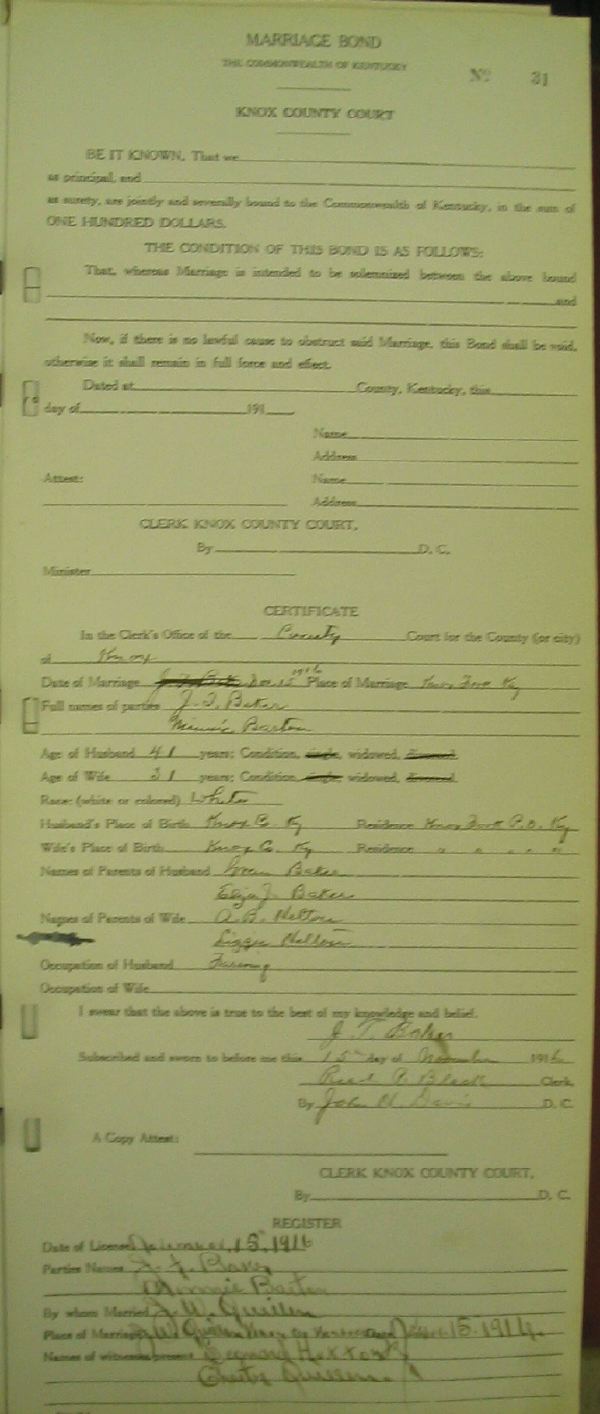 MARRIAGE BOND
THE COMMONWEALTH OF KENTUCKY
No 31
KNOX COUNTY COURT
BE IT KNOWN, That we
as principal, and
as surety, are jointly and severally bound to the Commonwealth of Kentucky, in the sum of
ONE HUNDRED DOLLARS.
THE CONDITION OF THIS BOND IS AS FOLLOWS:
That, whereas Marriage is intended to be solemnized between the above bound
and
Now, if there is no lawful cause to obstruct said Marriage, this Bond shall be void,
otherwise it shall remain in full force and effect.
Dated at County, Kentucky, this
day of 191
Name
Address
Attest: Name
Address
CLERK KNOX COUNTY COURT.
By D. C.
Minister
CERTIFICATE
In the Clerk's Office of the County Court for the County (or city)
of Knox
Date of Marriage 15 1916 Place of Marriage Knox Fork Ky
Full names of parties J. T. Baker
Minnie Barton
Age of Husband 41 years; Condition, single, widowed, divorced.
Age of Wife 31 years; Condition, single, widowed, divorced.
Race: (white or colored) White
Husband's Place of Birth Knox Co. Ky Residence Knox Fork P.O. Ky
Wife's Place of Birth Knox Co. Ky Residence " " " "
Names of Parents of Husband Baker
Eliza J. Baker
Names of Parents of Wife A. B. Helton
Lizzie Helton
Occupation of Husband Farming
Occupation of Wife
I swear that the above is true to the best of my knowledge and belief.
J. T. Baker
Subscribed and sworn to before me this 15 day of November 1916
Read P. Black Clerk.
By John H. Davis D. C.
A Copy Attest:
CLERK KNOX COUNTY COURT.
By D. C.
REGISTER
Date of License 15. 1916
Parties Names J. T. Baker
Minnie Barton
By whom Married J. W. Quillen
Place of Marriage 15. 1916.
Names of witnesses present
Quillen